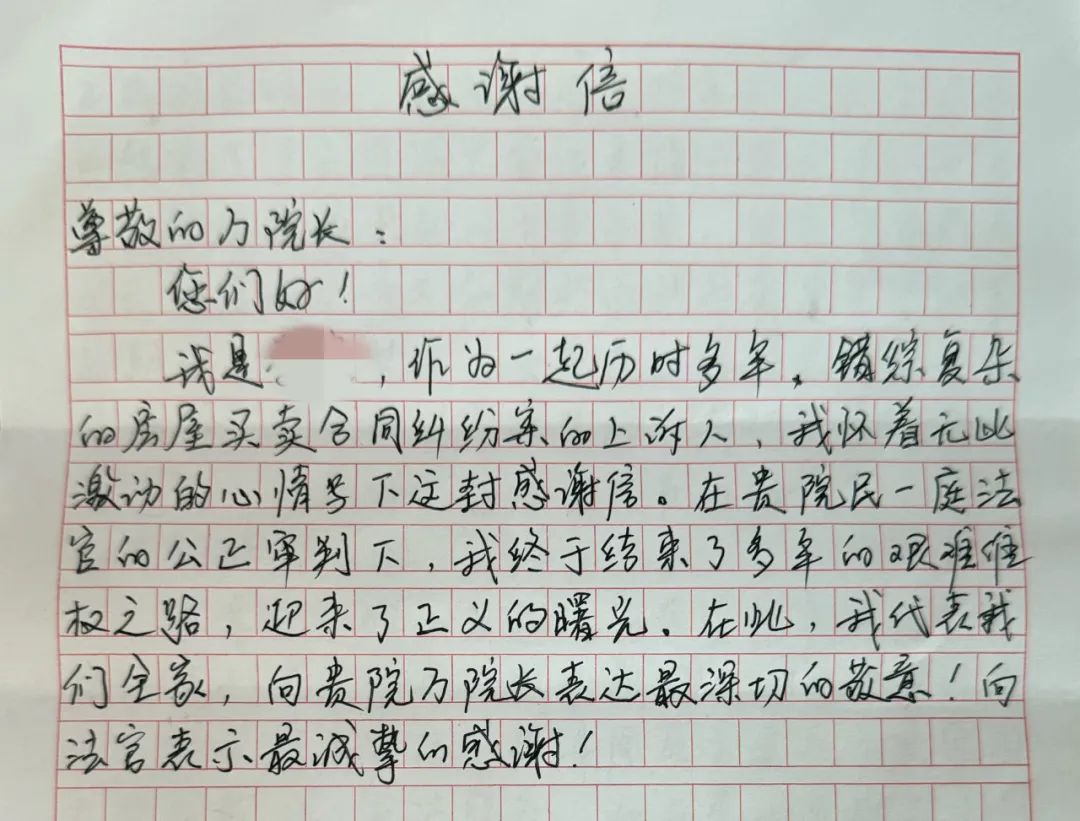 感谢信
尊敬的万院长：
您们好！
我是，作为一起历时多年、错综复杂
的房屋买卖合同纠纷案的上诉人，我怀着无比
激动的心情写下这封感谢信。在贵院民一庭法
官的公正审判下，我终于结束了多年的艰难维
权之路，迎来了正义的曙光。在此，我代表我
们全家，向贵院万院长表达最深切的敬意！向
法官表示最诚挚的感谢！